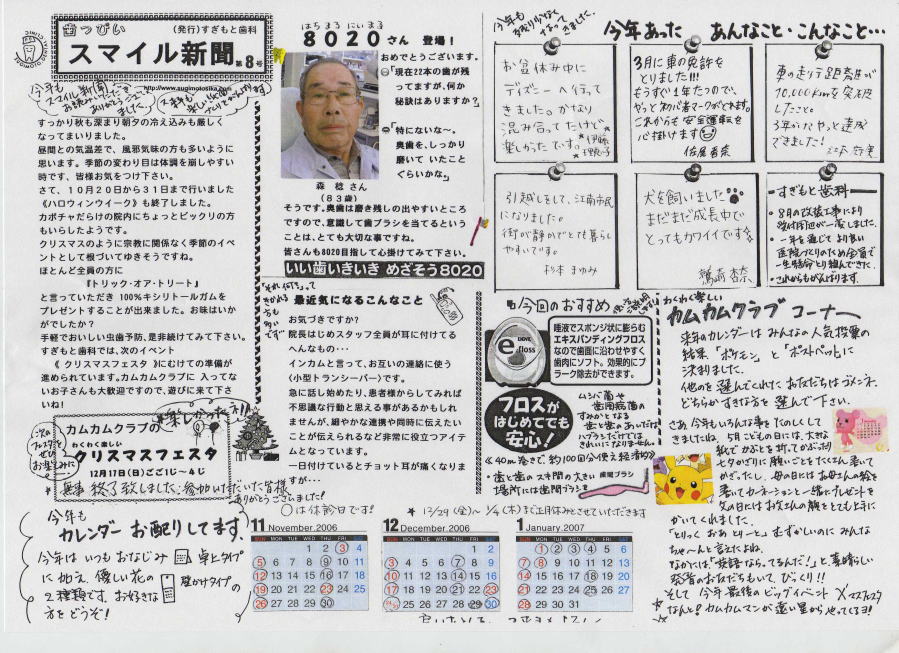 歯っぴぃ
(発行)すぎもと歯科
スマイル新聞 第8号
http://www.sugimotosika.com
すっかり秋も深まり朝夕の冷え込みも厳しく
なってまいりました。
昼間との気温差で、風邪気味の方も多いように
思います。季節の変わり目は体調を崩しやすい
時です、皆様お気をつけ下さい。
さて、10月20日から31日まで行いました
《ハロウィンウイーク》も終了しました。
カボチャだらけの院内にちょっとビックリの方
もいらしたようです。
クリスマスのように宗教に関係なく季節のイベ
ントとして根づいてゆきそうですね。
ほとんど全員の方に
『トリック・オア・トリート』
と言っていただき 100%キシリトールガムを
プレゼントすることが出来ました。お味はいか
がでしたか?
手軽でおいしい虫歯予防、是非続けてみて下さい。
すぎもと歯科では、次のイベント
《 クリスマスフェスタ 》にむけての準備が
進められています。カムカムクラブに 入ってない
お子さんも大歓迎ですので、遊びに来て下さ
いね!
楽しかったネ!!
カムカムクラブの
わくわく楽しい
クリスマスフェスタ
12月17日(日)ごご1じ~4じ
無事 終了致しました。参加いただいた皆様
ありがとうございました!
今年も
カレンダー お配りしてます。
今年は いつもおなじみ 卓上タイプ
に加え、優しい花の 壁かけタイプの
2種類です。お好きな
方をどうぞ!
はちまる にいまる
8020さん 登場!
おめでとうございます。
「現在22本の歯が残っ
てますが、何か
秘訣はありますか?」
「特にないな~。
奥歯を、しっかり
磨いて いたこと
ぐらいかな。」
森 稔 さん
(83歳)
そうです。奥歯は磨き残しの出やすいところ
ですので、意識して歯ブラシを当てるという
ことは、とても大切な事ですね。
皆さんも8020目指して心掛けてみて下さい。
いい歯いきいき めざそう8020
最近気になるこんなこと
お気づきですか?
院長はじめスタッフ全員が耳に付けてる
へんなもの・・・
インカムと言って、お互いの連絡に使う
〈小型トランシーバー〉です。
急に話し始めたり、患者様からしてみれば
不思議な行動と思える事があるかもしれ
ませんが、細やかな連携や同時に伝えたい
ことが伝えられるなど非常に役立つアイテ
ムとなっています。
一日付けているとチョット耳が痛くなりま
すが・・・
今回のおすすめ
e floss
唾液でスポンジ状に膨らむ
エキスパンディングフロス
なので歯面に沿わせやすく
歯肉にソフト。効果的にプ
ラーク除去ができます。
フロスが
はじめてでも
安心!
ムシ歯や
歯周病菌の
すみかとなる
歯と歯のあいだは
ハブラシだけでは
きれいになりません。
《40m巻きで、約100回分使え経済的》
・歯と歯のスキ間の大きい
場所には歯間ブラシを
歯間ブラシ
○は休診日です!
* 12/29(金)~1/4(木)まで正月休みとさせていただきます
11 November.2006
SUN MON TUE WED THU FRI SAT
1 2 3 4
5 6 7 8 9 10 11
12 13 14 15 16 17 18
19 20 21 22 23 24 25
26 27 28 29 30
12 December.2006
SUN MON TUE WED THU FRI SAT
1 2
3 4 5 6 7 8 9
10 11 12 13 14 15 16
17 18 19 20 21 22 23
24/31 25 26 27 28 29 30
1 January.2007
SUN MON TUE WED THU FRI SAT
1 2 3 4 5 6
7 8 9 10 11 12 13
14 15 16 17 18 19 20
21 22 23 24 25 26 27
28 29 30 31
今年も
残り少なく
なってきました。
今年あった あんなこと・こんなこと…
お盆休み中に
ディズニーへ行って
きました。かなり
混み合ってたけど
楽しかったです。
3月に車の免許を
とりました!!!
もうすぐ1年たつので、
やっと初心者マークがとれます。
これからも安全運転を
心掛けます
車の走行距離数が
10,000Kmを突破
したこと
3年かけてやっと達成
できました!
引越しをして、江南市民
になりました。
街が静かでとても暮らし
やすいです。
杉本 まゆみ
犬を飼いました
まだまだ成長中で
とってもカワイイです
すぎもと歯科
・8月の改装工事により
受付周辺が一変しました。
・一年を通じてより良い
医院づくりのため全員で
一生懸命とり組んできた。
・これからもがんばります。
わくわく楽しい
カムカムクラブ コーナー
来年のカレンダーは みんなの人気投票の
結果「ポケモン」と「ポストペット」に
決まりました。
他のを選んでくれたお友だちはゴメンネ。
どちらかすきな方を選んで下さい。
さあ、今年もいろんな事をたのしくして
きましたね。5月こどもの日には、大きな
紙でかぶとを折ってかぶったり
七夕かざりに願いごとをたくさん書いて
かざったし、母の日にはお母さんの絵を
書いてカーネーションと一緒にプレゼントを
父の日にはお父さんの顔をとても上手に
かいてくれました。
「とりっく おあ とりーと」むずかしいのに みんな
ちゃ~んと言えたよね。
なかには「英語なら、てるんだ!」と素晴らしい
発音のお友だちもいて、びっくり!!
そして 今年最後のビッグイベント Xマスフェスタ
なんと!カムカムマンが遠い星からやってくるヨ!